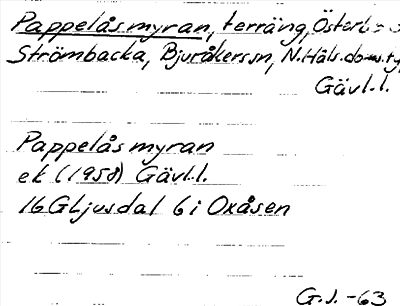 Pappelåsmyran, terräng,
Strömbacka, Bjuråkerssn, N.Häls.doms.
Gävl.l.
Pappelåsmyran
ek (1958) Gävl.l.
16G Ljusdal 6i Oxåsen
G.J. -63